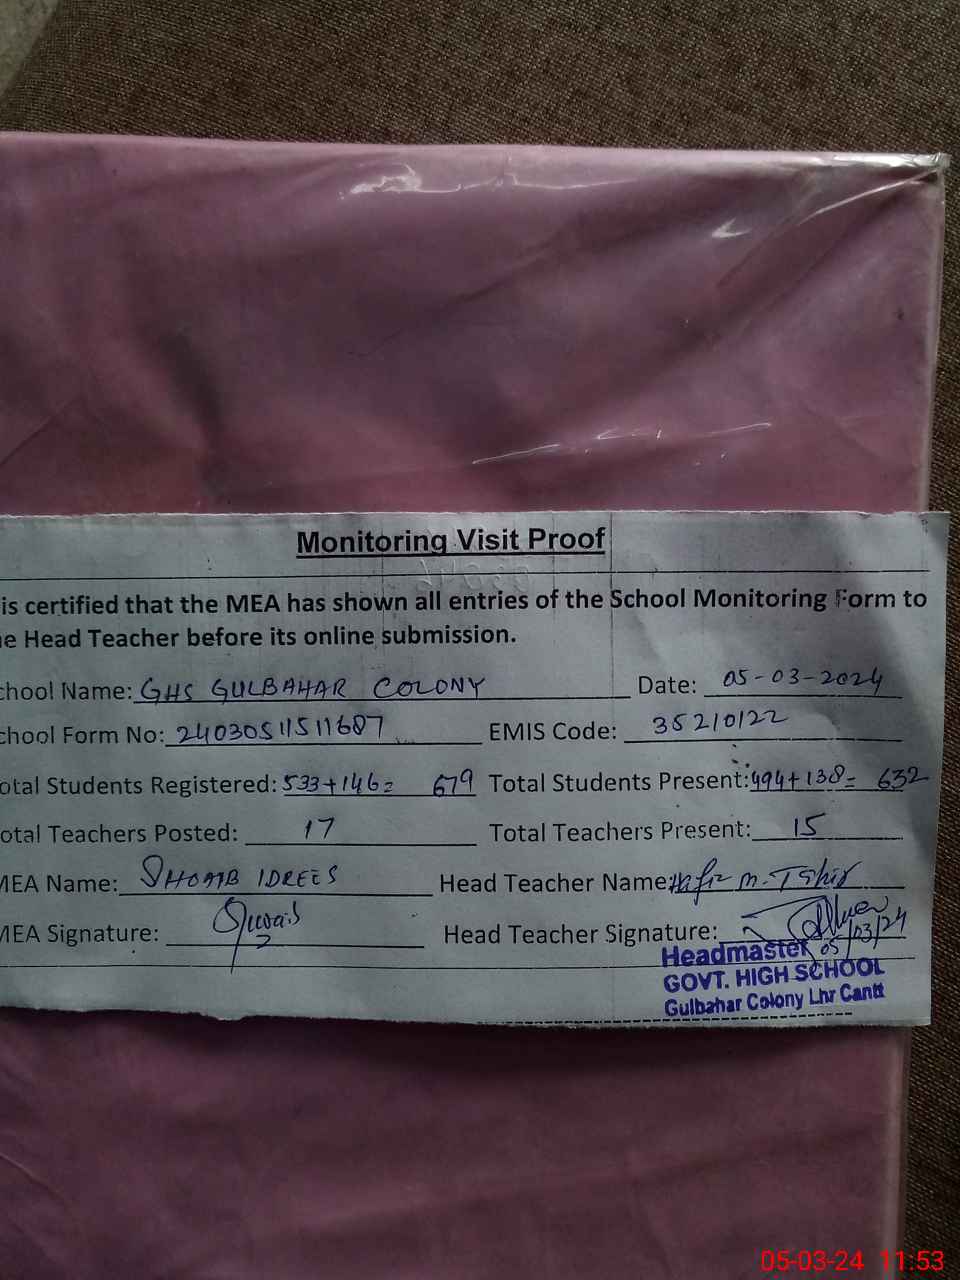 Monitoring Visit Proof
is certified that the MEA has shown all entries of the School Monitoring Form to
e Head Teacher before its online submission.
chool Name: GHS GULBAHAR COLONY Date: 05-03-2024
chool Form No: 24030511511687 EMIS Code: 35210122
otal Students Registered: 533+146= 679 Total Students Present: 494+138= 632
otal Teachers Posted: 17 Total Teachers Present: 15
MEA Name: SHOAIB IDREES Head Teacher Name: Hafiz M. Tahir
MEA Signature: Head Teacher Signature: 05/03/24
Headmaster
GOVT. HIGH SCHOOL
Gulbahar Colony Lhr Cantt
05-03-24 11:53